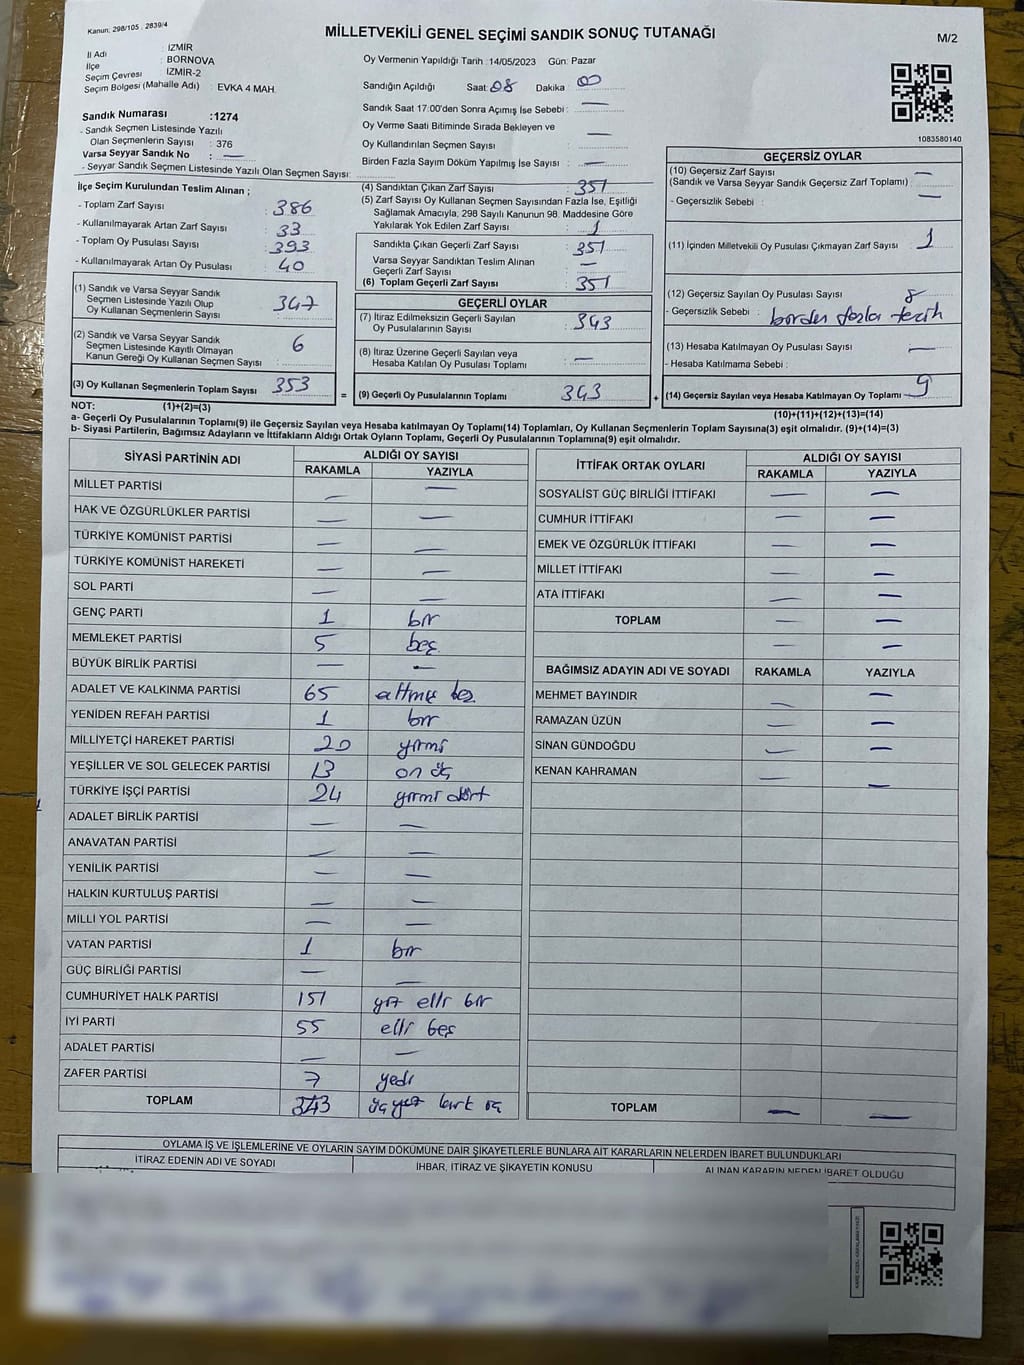 Kanun: 298/105 : 2839/4
MİLLETVEKİLİ GENEL SEÇİMİ SANDIK SONUÇ TUTANAĞI
M/2
İl Adı : İZMİR
İlçe : BORNOVA
Seçim Çevresi : İZMİR-2
Seçim Bölgesi (Mahalle Adı) : EVKA 4 MAH.
Oy Vermenin Yapıldığı Tarih : 14/05/2023 Gün: Pazar
Sandığın Açıldığı Saat: 08 Dakika 00
Sandık Saat 17:00'den Sonra Açımış İse Sebebi : —
Oy Verme Saati Bitiminde Sırada Bekleyen ve
Oy Kullandırılan Seçmen Sayısı : —
Birden Fazla Sayım Döküm Yapılmış İse Sayısı : —
1083580140
Sandık Numarası :1274
- Sandık Seçmen Listesinde Yazılı
Olan Seçmenlerin Sayısı : 376
Varsa Seyyar Sandık No : —
- Seyyar Sandık Seçmen Listesinde Yazılı Olan Seçmen Sayısı:
İlçe Seçim Kurulundan Teslim Alınan ;
- Toplam Zarf Sayısı : 386
- Kullanılmayarak Artan Zarf Sayısı : 33
- Toplam Oy Pusulası Sayısı : 393
- Kullanılmayarak Artan Oy Pusulası : 40
(1) Sandık ve Varsa Seyyar Sandık
Seçmen Listesinde Yazılı Olup
Oy Kullanan Seçmenlerin Sayısı : 347
(2) Sandık ve Varsa Seyyar Sandık
Seçmen Listesinde Kayıtlı Olmayan
Kanun Gereği Oy Kullanan Seçmen Sayısı : 6
(3) Oy Kullanan Seçmenlerin Toplam Sayısı 353
(1)+(2)=(3)
(4) Sandıktan Çıkan Zarf Sayısı : 351
(5) Zarf Sayısı Oy Kullanan Seçmen Sayısından Fazla İse, Eşitliği
Sağlamak Amacıyla, 298 Sayılı Kanunun 98. Maddesine Göre
Yakılarak Yok Edilen Zarf Sayısı : 1
Sandıkta Çıkan Geçerli Zarf Sayısı : 351
Varsa Seyyar Sandıktan Teslim Alınan
Geçerli Zarf Sayısı : —
(6) Toplam Geçerli Zarf Sayısı : 351
GEÇERLİ OYLAR
(7) İtiraz Edilmeksizin Geçerli Sayılan
Oy Pusulalarının Sayısı : 343
(8) İtiraz Üzerine Geçerli Sayılan veya
Hesaba Katılan Oy Pusulası Toplamı : —
= (9) Geçerli Oy Pusulalarının Toplamı 343
GEÇERSİZ OYLAR
(10) Geçersiz Zarf Sayısı : —
(Sandık ve Varsa Seyyar Sandık Geçersiz Zarf Toplamı)
- Geçersizlik Sebebi : —
(11) İçinden Milletvekili Oy Pusulası Çıkmayan Zarf Sayısı : 1
(12) Geçersiz Sayılan Oy Pusulası Sayısı : 8
- Geçersizlik Sebebi : birden fazla tercih
(13) Hesaba Katılmayan Oy Pusulası Sayısı : —
- Hesaba Katılmama Sebebi :
+ (14) Geçersiz Sayılan veya Hesaba Katılmayan Oy Toplamı 9
(10)+(11)+(12)+(13)=(14)
NOT:
a- Geçerli Oy Pusulalarının Toplamı(9) ile Geçersiz Sayılan veya Hesaba katılmayan Oy Toplamı(14) Toplamları, Oy Kullanan Seçmenlerin Toplam Sayısına(3) eşit olmalıdır. (9)+(14)=(3)
b- Siyasi Partilerin, Bağımsız Adayların ve İttifakların Aldığı Ortak Oyların Toplamı, Geçerli Oy Pusulalarının Toplamına(9) eşit olmalıdır.
SİYASİ PARTİNİN ADI ALDIĞI OY SAYISI
RAKAMLA YAZIYLA
MİLLET PARTİSİ — —
HAK VE ÖZGÜRLÜKLER PARTİSİ — —
TÜRKİYE KOMÜNİST PARTİSİ — —
TÜRKİYE KOMÜNİST HAREKETİ — —
SOL PARTİ — —
GENÇ PARTİ 1 bir
MEMLEKET PARTİSİ 5 beş
BÜYÜK BİRLİK PARTİSİ — —
ADALET VE KALKINMA PARTİSİ 65 altmış beş
YENİDEN REFAH PARTİSİ 1 bir
MİLLİYETÇİ HAREKET PARTİSİ 20 yirmi
YEŞİLLER VE SOL GELECEK PARTİSİ 13 on üç
TÜRKİYE İŞÇİ PARTİSİ 24 yirmi dört
ADALET BİRLİK PARTİSİ — —
ANAVATAN PARTİSİ — —
YENİLİK PARTİSİ — —
HALKIN KURTULUŞ PARTİSİ — —
MİLLİ YOL PARTİSİ — —
VATAN PARTİSİ 1 bir
GÜÇ BİRLİĞİ PARTİSİ — —
CUMHURİYET HALK PARTİSİ 151 yüz elli bir
İYİ PARTİ 55 elli beş
ADALET PARTİSİ — —
ZAFER PARTİSİ 7 yedi
TOPLAM 343 üç yüz kırk üç
İTTİFAK ORTAK OYLARI ALDIĞI OY SAYISI
RAKAMLA YAZIYLA
SOSYALİST GÜÇ BİRLİĞİ İTTİFAKI — —
CUMHUR İTTİFAKI — —
EMEK VE ÖZGÜRLÜK İTTİFAKI — —
MİLLET İTTİFAKI — —
ATA İTTİFAKI — —
TOPLAM — —
BAĞIMSIZ ADAYIN ADI VE SOYADI RAKAMLA YAZIYLA
MEHMET BAYINDIR — —
RAMAZAN ÜZÜN — —
SİNAN GÜNDOĞDU — —
KENAN KAHRAMAN — —
TOPLAM — —
OYLAMA İŞ VE İŞLEMLERİNE VE OYLARIN SAYIM DÖKÜMÜNE DAİR ŞİKAYETLERLE BUNLARA AİT KARARLARIN NELERDEN İBARET BULUNDUKLARI
İTİRAZ EDENİN ADI VE SOYADI İHBAR, İTİRAZ VE ŞİKAYETİN KONUSU ALINAN KARARIN NEDEN İBARET OLDUĞU